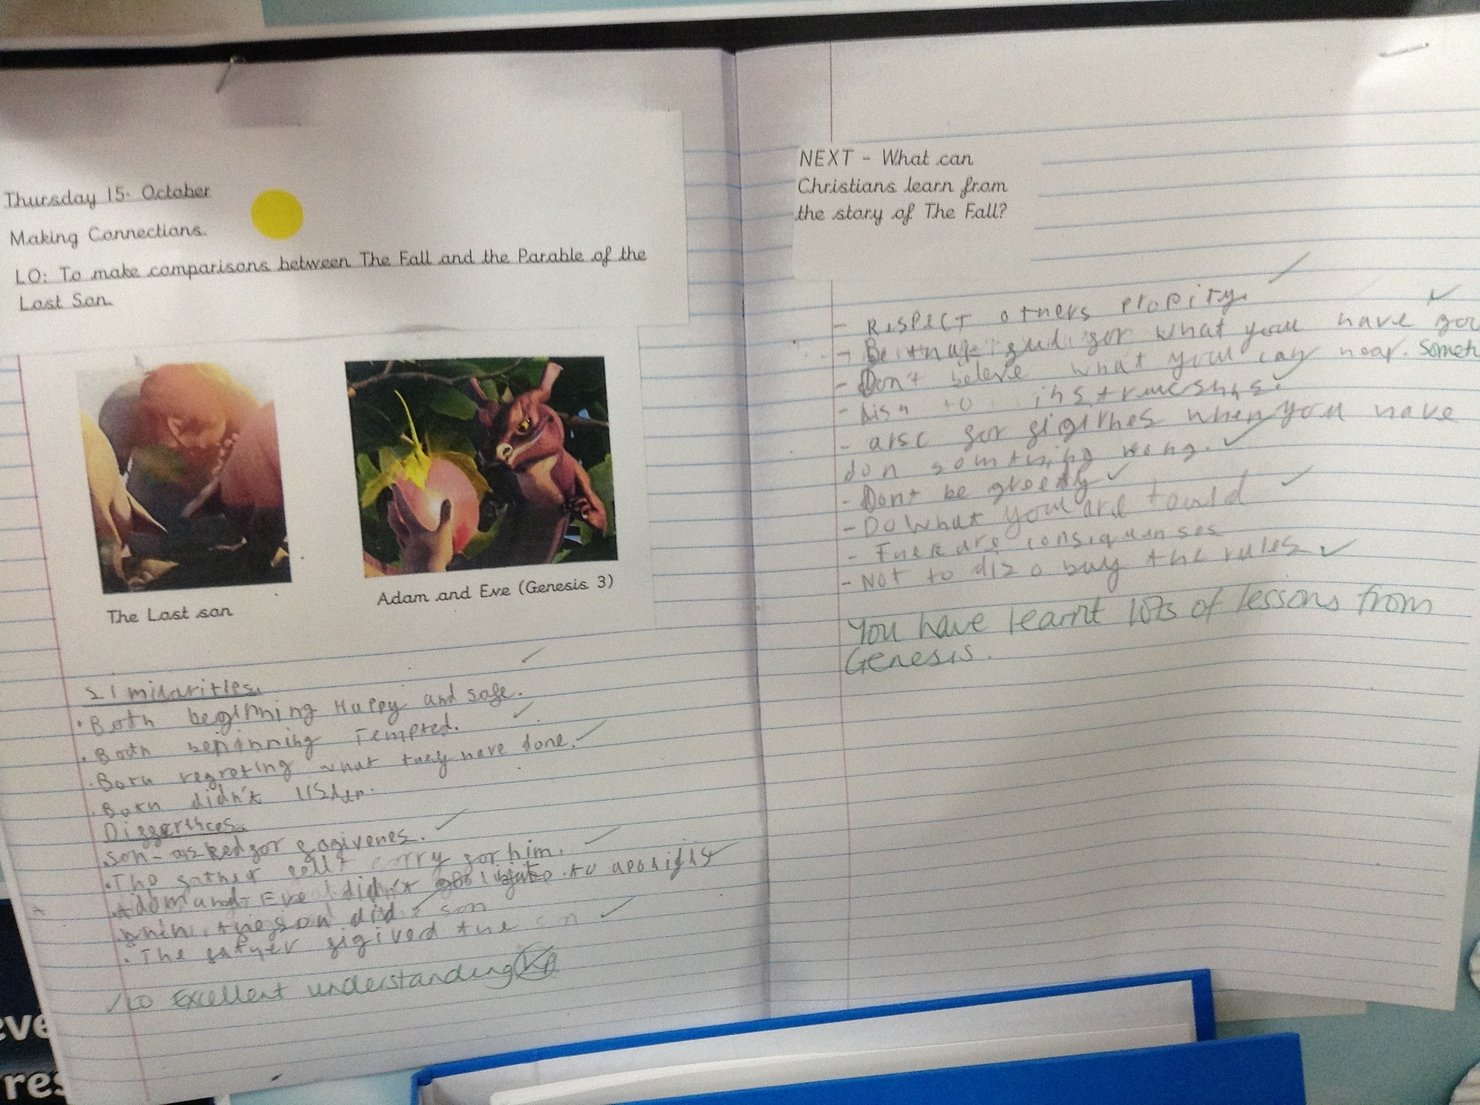 Thursday 15. October
Making Connections.
LO: To make comparisons between The Fall and the Parable of the
Lost Son.
The Lost son
Adam and Eve (Genesis 3)
Similarities
Both beginning Happy and safe.
Both beninning Tempted.
Both regreting what they have done.
Both didn't listen.
son- asked for
The father felt sorry for him.
Adom and Eve didn't to
the son did son
The father the
LO Excellent understanding
NEXT - What can
Christians learn from
the story of The Fall?
- Respect others
- for what you have got
- Don't beleve what you can hear. someti
- to
- for when you have
don somthing wrong.
- Dont be greedy
- Do what you are tould
- There are
- Not to dis o buy the rules
You have learnt lots of lessons from
Genesis.
eve
res